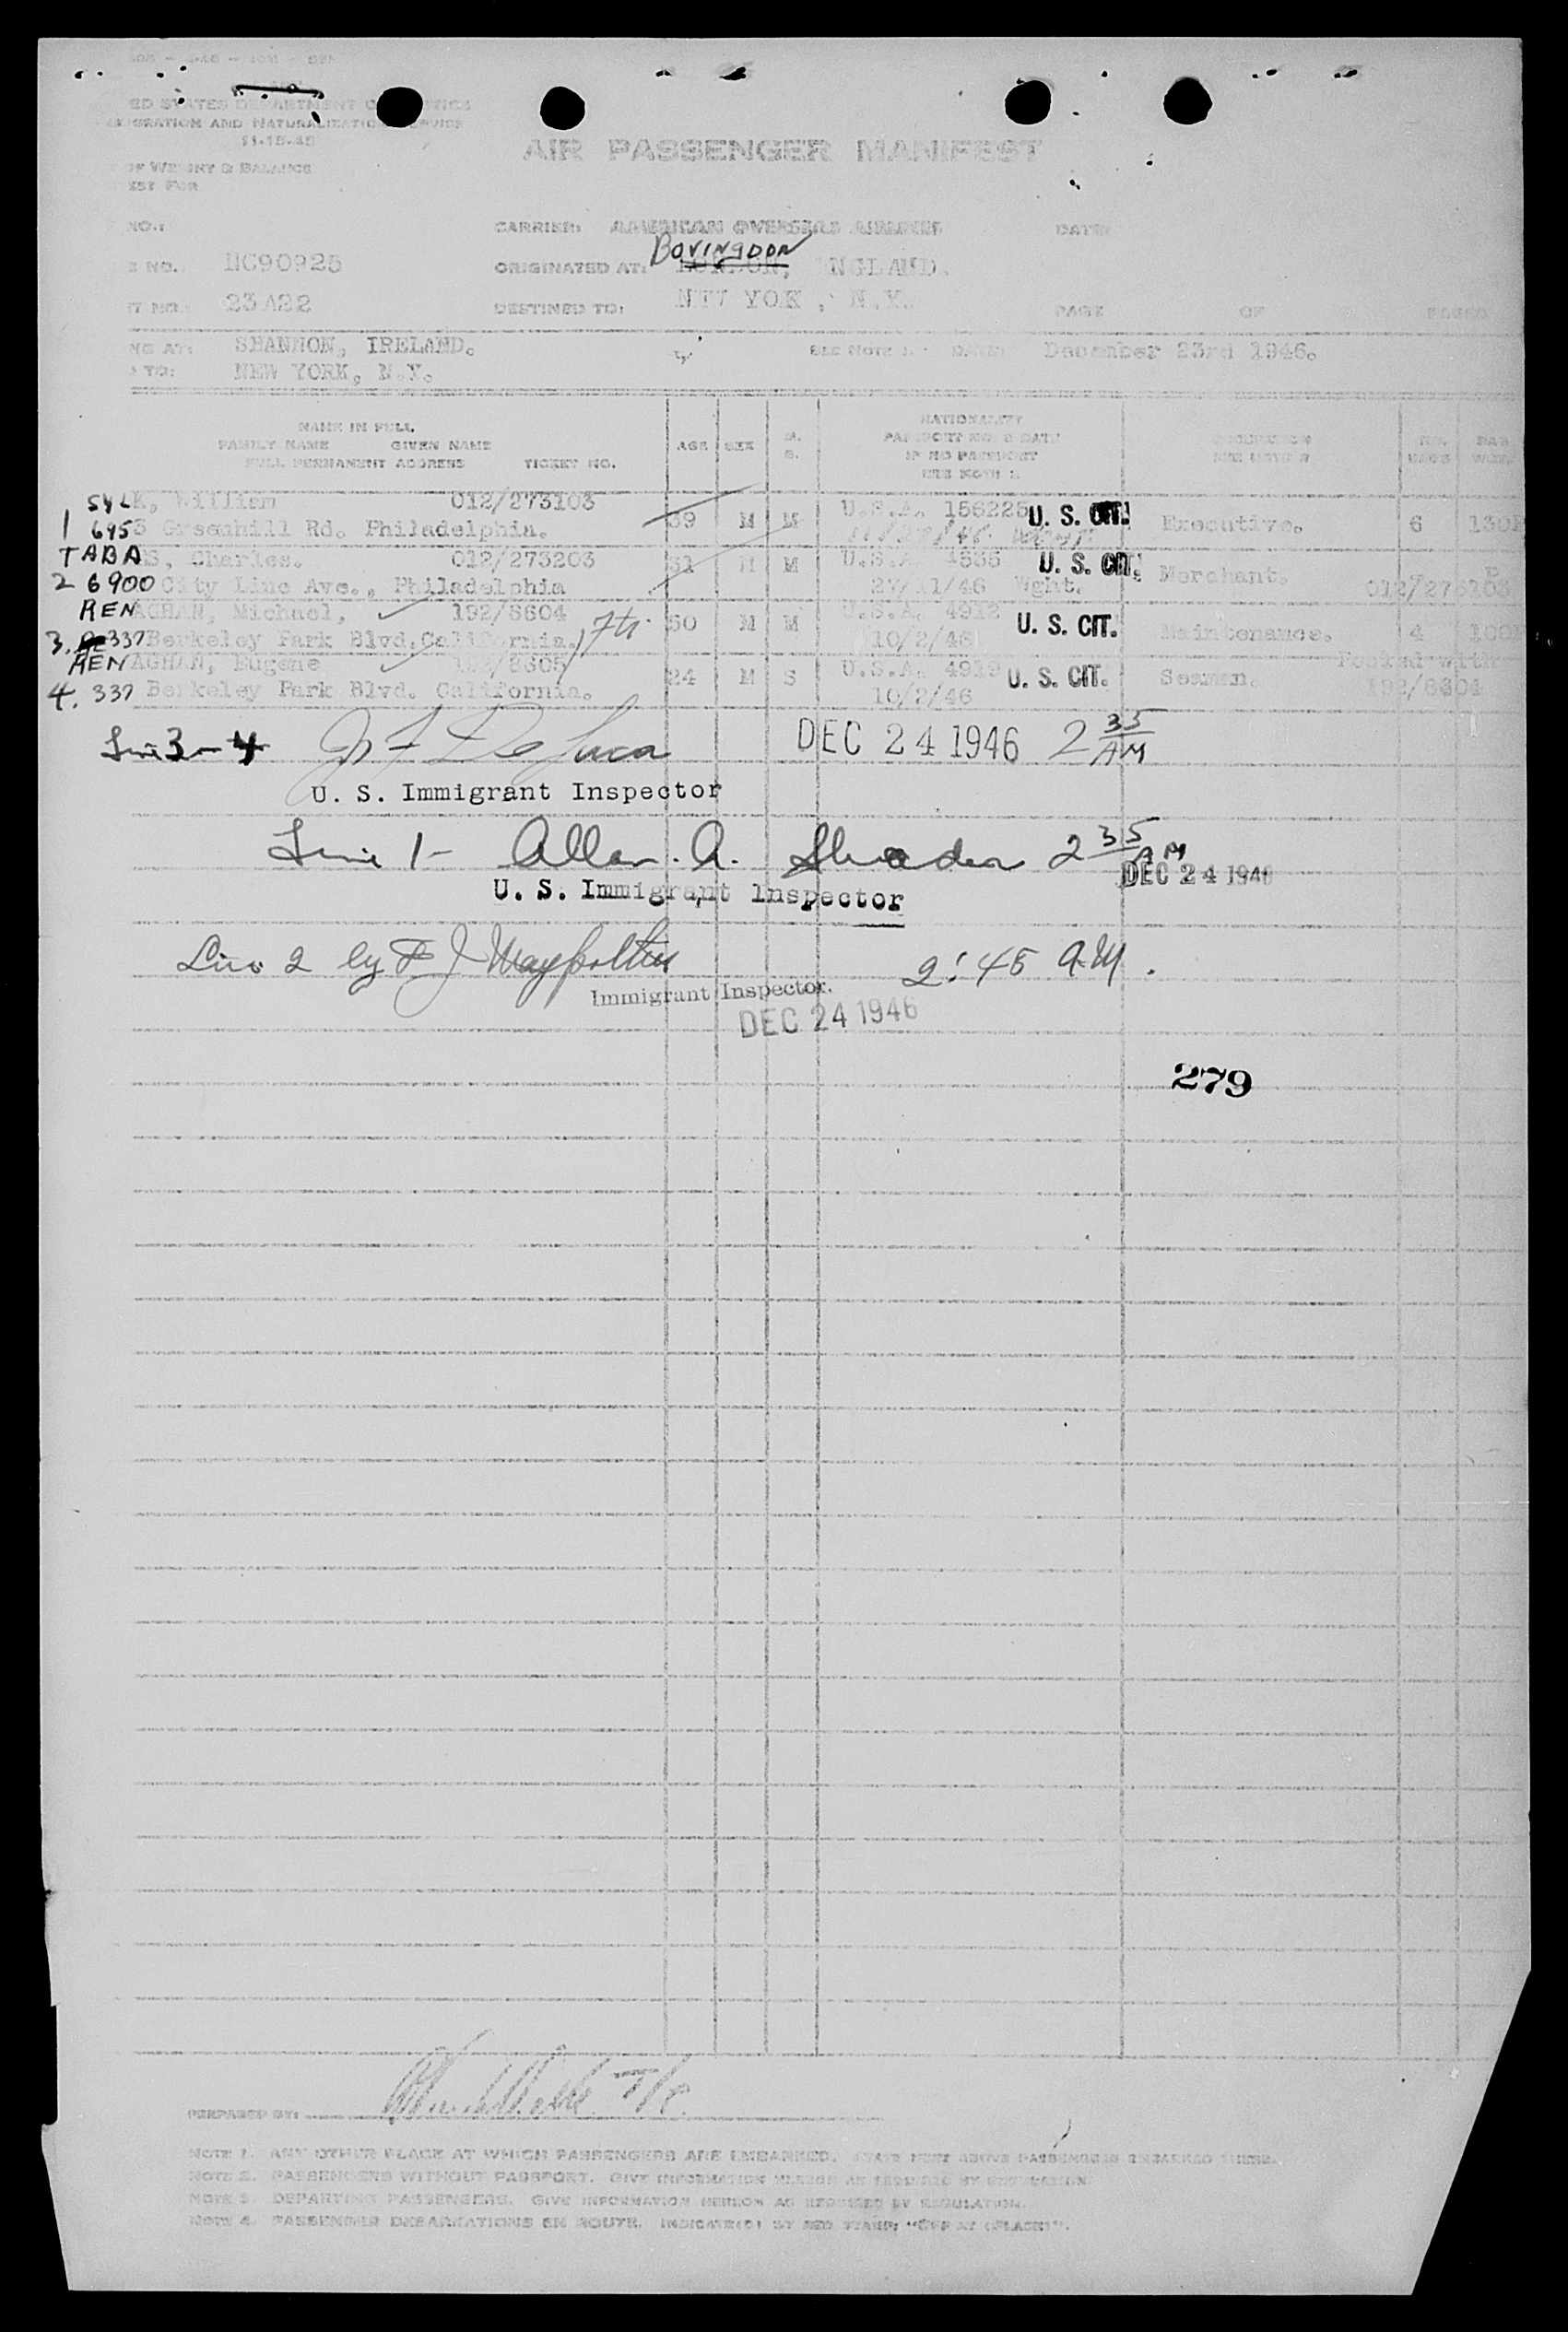 ED STATES DEPARTMENT OF JUSTICE
IGRATION AND NATURALIZATION SERVICE
11-15-45
AIR PASSENGER MANIFEST
OF WEIGHT & BALANCE
EST FOR
NO.: CARRIER: AMERICAN OVERSEAS AIRLINES DATE:
BOVINGDON
E NO. NC90925 ORIGINATED AT: LONDON, ENGLAND.
T NO.: 23A22 DESTINED TO: NEW YORK, N.Y. PAGE OF PAGES
NG AT: SHANNON, IRELAND. SEE NOTE 1 - DATE: December 23rd 1946.
TO: NEW YORK, N.Y.
NAME IN FULL
FAMILY NAME GIVEN NAME
FULL PERMANENT ADDRESS TICKET NO.
AGE SEX M. S.
NATIONALITY
PASSPORT NO. & DATE
IF NO PASSPORT
SEE NOTE 2
OCCUPATION
SEE NOTE 3
NO. BAGS
BAG WGHT
SYLK, William 012/273103 39 M M U.S.A. 156225 U. S. CIT. Executive. 6
1 6953 Greenhill Rd. Philadelphia.
TABAS, Charles. 012/273203 31 M M U.S.A. 4535 U. S. CIT. Merchant.
2 6900 City Line Ave., Philadelphia 27/11/46 Wght. 012/273103
RENAGHAN, Michael, 192/8604 50 M M U.S.A. 4912 U. S. CIT. Maintenance. 4
3. 337 Berkeley Park Blvd. California. 10/2/46
RENAGHAN, Eugene 192/8605 24 M S U.S.A. 4919 U. S. CIT. Seaman. Pooled with
4. 337 Berkeley Park Blvd. California. 10/2/46 192/8604
Line 3-4 De Luca DEC 24 1946 2 35 AM
U. S. Immigrant Inspector
Line 1- Allan. A. Shrader 2 35 AM
DEC 24 1946
U. S. Immigrant Inspector
Line 2 by 2:45 A.M.
Immigrant Inspector.
DEC 24 1946
279
PREPARED BY:
NOTE 1. ANY OTHER PLACE AT WHICH PASSENGERS ARE EMBARKED. STATE NEXT ABOVE PASSENGERS EMBARKED THERE.
NOTE 2. PASSENGERS WITHOUT PASSPORT. GIVE INFORMATION HEREON AS REQUIRED BY REGULATION.
NOTE 3. DEPARTING PASSENGERS. GIVE INFORMATION HEREON AS REQUIRED BY REGULATION.
NOTE 4. PASSENGER DEBARKATIONS EN ROUTE. INDICATE(D) BY RED STAMP: "OFF AT (PLACE)".